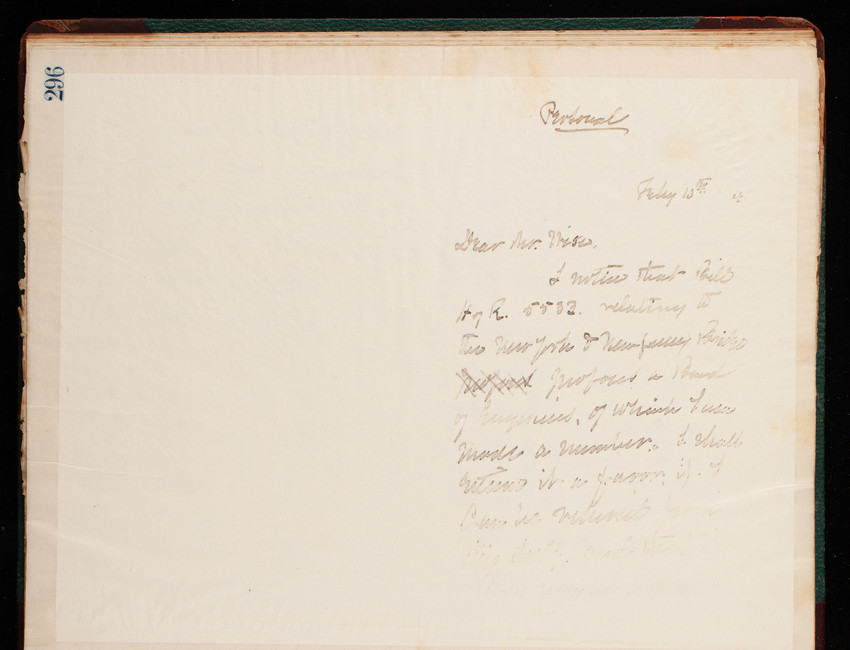 296
Personal
Feby 13th
Dear Mr. Wise.
I notice that Bill
H of R. 5533. relating to
the New York & New Jersey Bridge
proposes a Board
of Engineers, of which I am
made a member. I shall
esteem it a favor if I
can be relieved from
this duty.